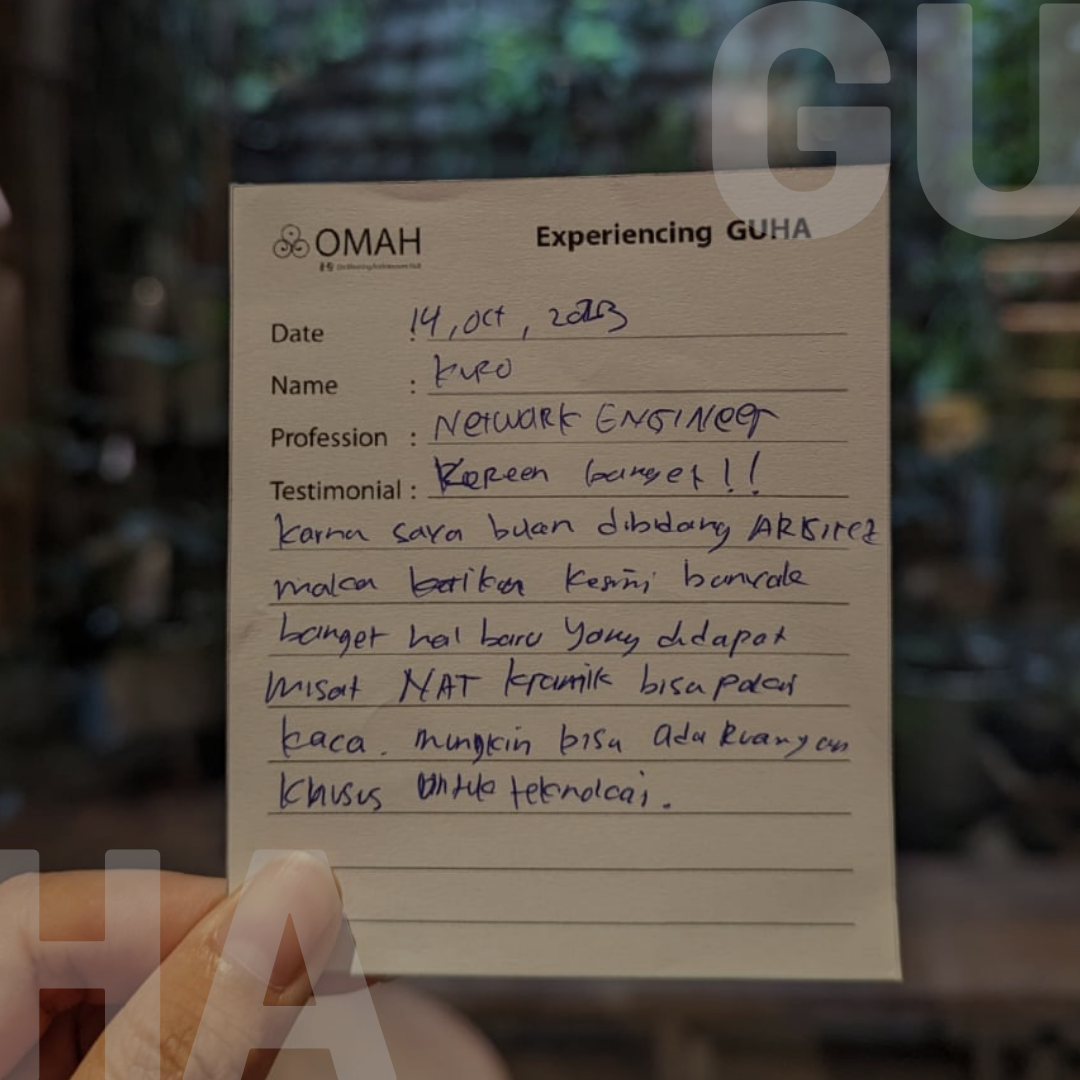 GU
OMAH
Experiencing GUHA
Date : 14, Oct, 2023
Name : Kuro
Profession : NetWORK ENGINEER
Testimonial : Kereen banget!!
karna saya bukan dibidang ARSITEK
maka ketika kesini banyak
banget hal baru yang didapat
misal NAT kramik bisa pakai
kaca. mungkin bisa ada Ruangan
khusus untuk teknologi.
HA